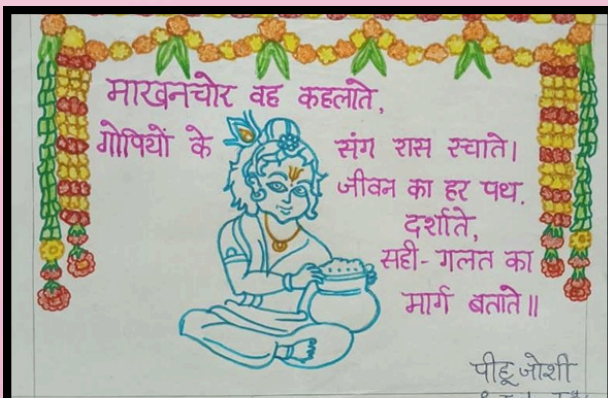 माखनचोर वह कहलाते,
गोपियों के संग रास रचाते।
जीवन का हर पथ.
दर्शाते,
सही-गलत का
मार्ग बताते॥
पीहू जोशी